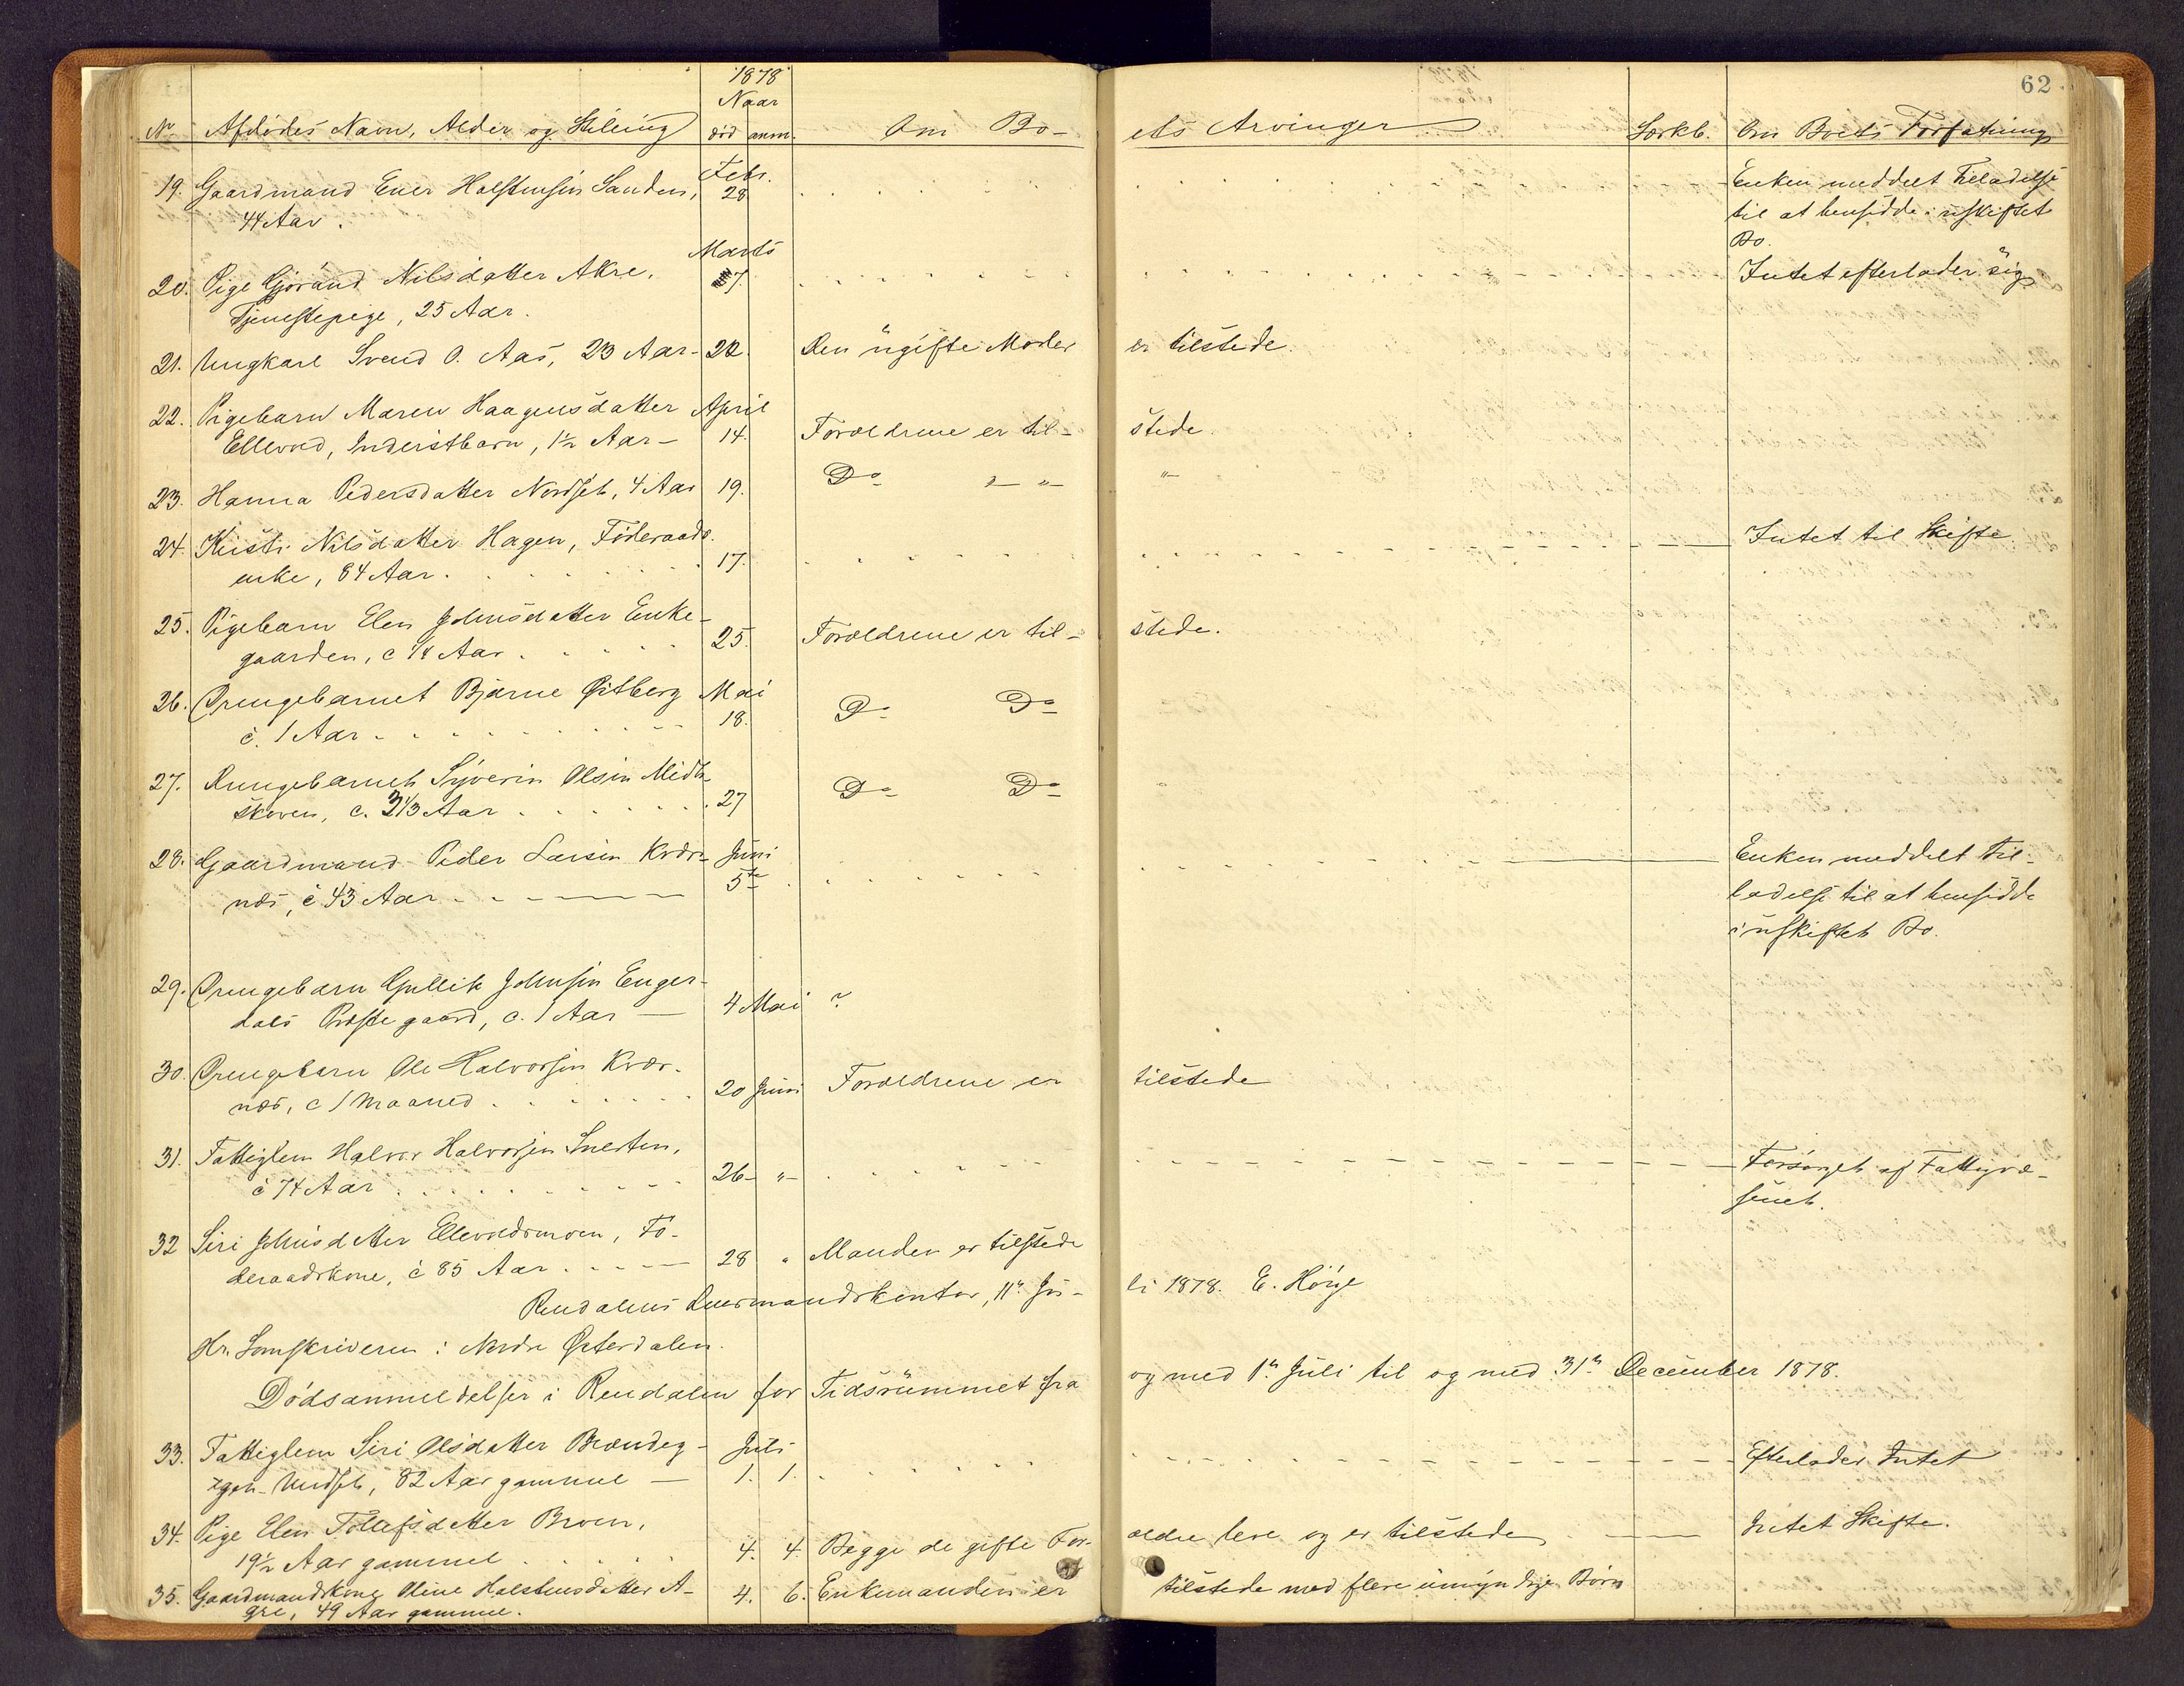 62
1878
Naar
No Afdødes Navn, Alder og Stilling død anm. Om Bo- ets Arvinger Særkb. Om Boets Forfatning
Febr.
19. Gaardmand Ener Halstensen Sanden, 28 Enken meddelt Tilladelse
44 Aar. til at hensidde i uskiftet
Bo.
Marts
20. Pige Gjørand Nilsdatter Akre, 7. Intet efterlader sig
Tjenestepige, 25 Aar.
21. Ungkarl Svend O. Aas, 23 Aar - 22. Den ugifte Moder er tilstede.
22. Pigebarn Maren Haagensdatter April
Ellevold, Inderstbarn, 1½ Aar - 14. Forældrene er til- stede.
23. Hanna Pedersdatter Nordset, 4 Aar 19. Do " " "
24. Kirsti Nilsdatter Hagen, Føderaads- Intet til Skifte
enke, 84 Aar. 17.
25. Pigebarn Elen Johnsdatter Enke-
gaarden, c 14 Aar 25. Forældrene er til- stede.
26. Drengebarnet Bjarne Østberg Mai
c. 1 Aar 18. Do Do
27. Drengebarnet Syverin Olsen Midt-
skoven, c. 3 1/3 Aar 27 Do Do
28. Gaardmand Peder Larsen Kvær- Juni Enken meddelt Til-
næs, c 43 Aar 5te ladelse til at hensidde
i uskiftet Bo.
29. Drengebarn Gullik Johnsen Enger-
dals Præstegaard, c. 1 Aar - 4 Mai ?
30. Drengebarn Ole Halvorsen Kvær-
næs, c 1 Maaned 20 Juni Forældrene er tilstede
31. Fattiglem Halvor Halvorsen Snerten, Forsørget af Fattigvæ-
c 74 Aar 26 - " - senet.
32 Siri Johnsdatter Ellevoldsmoen, Fø-
deraadskone, c 85 Aar 28 " Manden er tilstede
Rendalens Lensmandskontor, 11te Ju- li 1878. E. Hørge
Hr. Sorenskriveren i Nordre Østerdalen.
Dødsanmeldelser i Rendalen for Tidsrummet fra og med 1te Juli til og med 31te December 1878.
33. Fattiglem Siri Olsdatter Brændeg- Juli
Undset, 82 Aar gammel - 1. 1. Efterlader Intet
34. Pige Elen Tollefsdatter Broen,
19½ Aar gammel 4. 4. Begge de gifte For- ældre leve og er tilstede Intet Skifte.
35. Gaardmandskone Oline Halstensdatter A- 4. 6. Enkemanden er tilstede med flere umyndige Børn
gre, 49 Aar gammel.